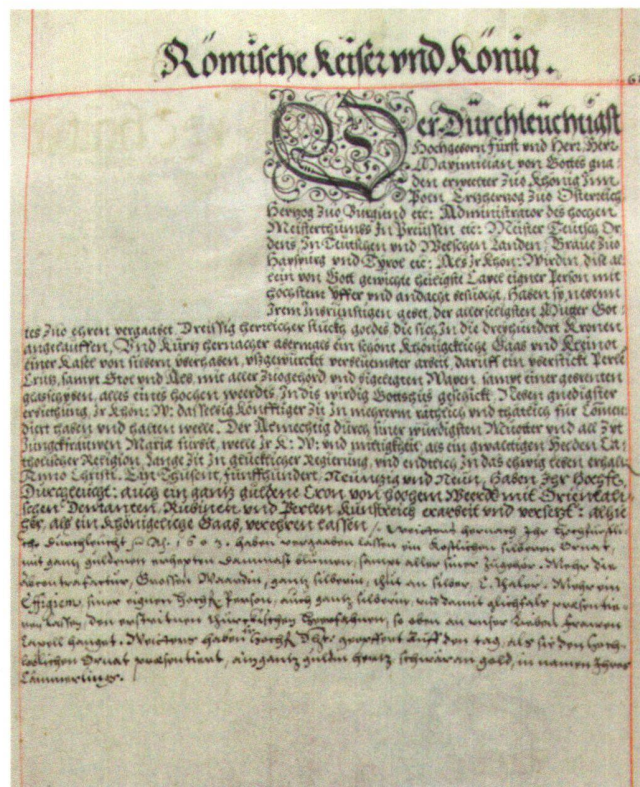 Römische Keiser vnd König.
Der Dürchleüchtigst
Hochgeborn Fürst vnd Herr, Herr
Maximilian von Gottes gna-
den erwelter zuo Khönig Inn
Polen Ertzherzog zuo Österreich
Hertzog zuo Burgund etc: Administrator des hochen
Meisterthumbs In Preüssen etc: Meister Teütsch Or-
dens, In Teütschen vnd Welschen Landen, Graue zuo
Hapspurg vnd Tyrol etc: Als Jr Khön: Wirden, dise al-
lein von Gott gewichte heiligste Capel eigner Person mit
höchstem yffer vnd andacht besuocht, Haben sy, nebent
Irem Inbrünstigen gebet, der allerseligsten Muoter Got-
tes zuo ehren vergaabet, Dreissig herrlicher stuckh goldes die sich In die dreyhundert Kronen
angeloffen, Vnd Kurtz hernacher abermals ein schöne Königckliche Gaab vnd Kleinot
einer Kasel von silbern arbeit, daruff ein Perle
Crütz, sampt Stol vnd aller zuogehörd vnd Wapen, sampt einer
alles eines hochen weerdts, In dis wirdig Gottshus geschickt, Neben gnedigster
Jr Khön: W: dasselbig Könfftiger zit In mehrerm vnd thätlich für
diert haben vnd halten welle. Der Allmechtig durch siner würdigsten Muotter vnd all Zyt
Jungckfrauwen Maria fürbit, welle Jr K: W: vnd als ein gwaltigen Helden Ca-
tholischer Religion, lange Zit In glücklicher Regierung, vnd endtlich In das ewig leben erhalten
Anno Christi. Ein Thusent, fünffhundert, Neüntzig vnd Neün, Haben Jhr Hochfr:
Dürchleücht: auch ein gantz guldene Cron von hochem Weerdt mit Orientali-
schen Demanten, Rubinen vnd Perlen Künstreich erarbeit vnd versetzt: alhie
har, als ein Königckliche Gaab, verehren lassen. Weiters hernach Jhr Hochfürstli-
che Durchleücht Ao. 1603. haben vergaaben lassen ein Kostlichen silberen Ornat,
mit gantz guldenen Dammast bluomen, sampt aller siner Zugehör. Mehr die
gantz silberin, an silber, Mehr ein
Effigiem, siner eignen Hochfr: Person, auch gantz silberin, vnd damit præsentie-
ren lassen, den so oben an vnser Lieben Frauwen
Capell hanget. Weiters haben Hochfr: Dht: vff den tag, als sie den hoch-
loblichen Ornat præsentiert, ein gantz gulden hertz, schwär an gold, in namen Ihres